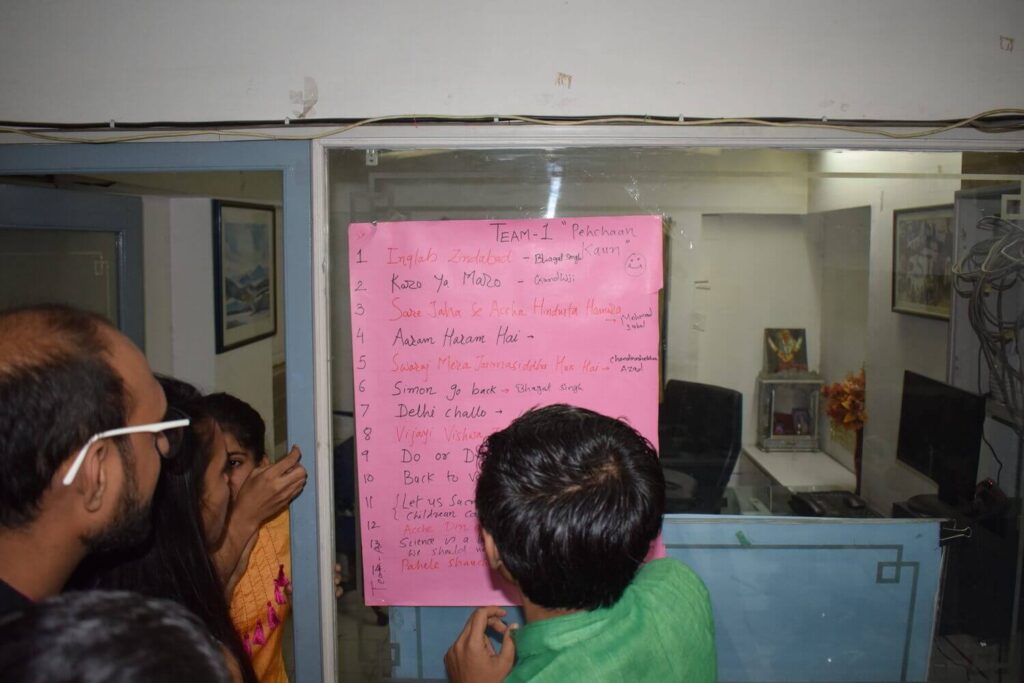 TEAM-1 "Pehchaan
Kaun"
1 Inqlab Zindabad - Bhagat Singh
2 Karo Ya Maro - Gandhiji
3 Sare Jaha Se Accha Hindusta Hamara
→ Mohmad
Iqbal
4 Aaram Haram Hai -
5 Swaraj Mera Janmasiddha Huk Hai → Chandrashekhar
Azad
6 Simon go back → Bhagat Singh
7 Delhi challo →
8 Vijayi Vishwa
9 Do or D
10 Back to V
11 { Let us Sacr
Children ca
12 Acche Din
13 Science is a
we should
14 Pahele Shauch